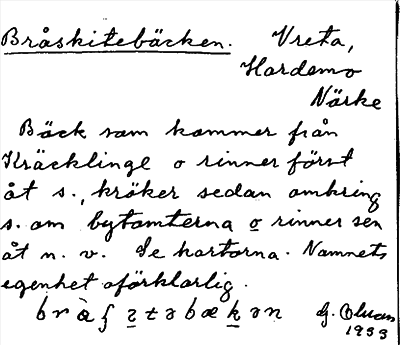 Bråskitebäcken. Vreta,
Hardemo
Närke
Bäck som kommer från
Kräcklinge o rinner först
åt s., kröker sedan omkring
s. om bytomterna o rinner sen
åt n. v. Se kartorna. Namnets
egenhet oförklarlig.
G.
1933